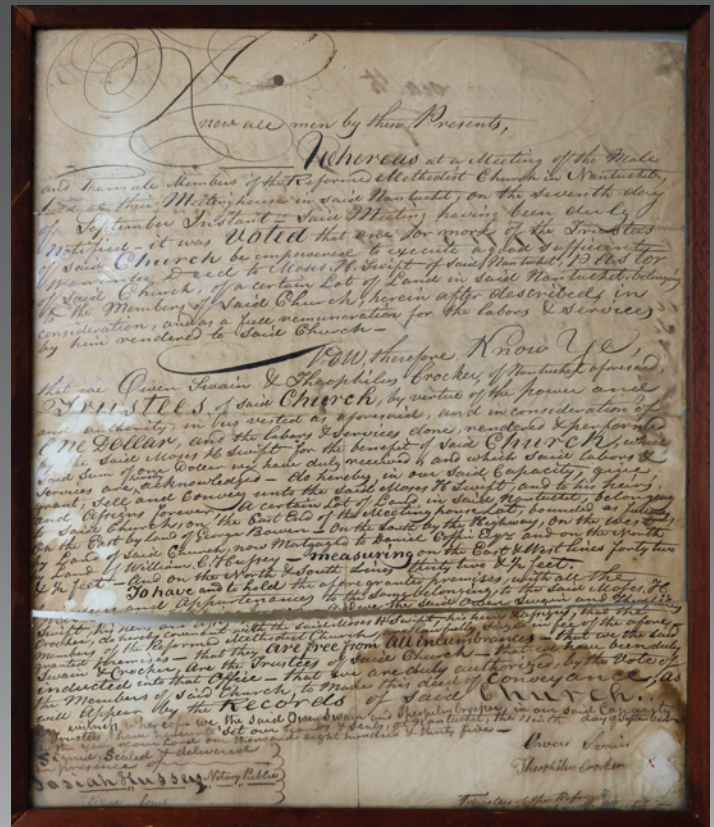 Know all men by these Presents,
Whereas at a Meeting of the Male
and Female Members of the Reformed Methodist Church in Nantucket,
at their Meetinghouse in said Nantucket, on the seventh day
of September Instant – said Meeting having been duly
notified – it was Voted that one or more of the Trustees
of said Church be empowered to execute a good & sufficient
Warrantee Deed to Moses H. Swift of said Nantucket, Pastor
of said Church, of a certain Lot of Land in said Nantucket, belonging
to the Members of said Church, herein after described, in
consideration, and as a full remuneration for the labors & services
by him rendered to said Church –
Now, therefore, Know Ye,
that we Owen Swain & Theophilus Crocker, of Nantucket aforesaid,
Trustees, of said Church, by virtue of the power and
and authority, in us vested as aforesaid, and in consideration of
One Dollar, and the labors & services done, rendered & performed
by the said Moses H Swift for the benefit of said Church, which
said Sum of one Dollar we have duly received, and which said labors &
services are, acknowledged – do hereby, in our said Capacity, give,
grant, sell and convey unto the said Moses H Swift, and to his heirs,
and Assigns forever, A certain Lot of Land in said Nantucket, belonging
to said Church, on the East End of the Meetinghouse Lot, bounded as
on the East by land of George Bowen – On the South by the Highway, on the West
by Land of said Church, now Mortgaged to Daniel Coffin Esqr and on the North
by Land of William C. Hussey – measuring on the East & West lines forty two
& ½ feet – And on the North & South Lines thirty two & ½ feet.
To have and to hold the aforegranted premises, with all the
and Appurtenances to the same belonging, to the said Moses H
Swift, his
the said Owen Swain and Theophilus
Crocker, do hereby covenant with the said Moses H Swift, his heirs & assigns, that the
members of the Reformed Methodist Church lawfully Seized in fee of the afore
granted premises – that they are free from all incumbrances – that we the said
Swain & Crocker, Are the Trustees of said Church – that we have been duly
inducted into that Office – that we are duly authorized, by the Vote of
the Members of said Church, to make this deed of conveyance, as
will Appear by the Records of said Church.
In witness hereof – we the said Owen Swain and Theophilus Crocker, in our said Capacity
Trustees, have hereunto set our hands & seals, at Nantucket, the Ninth day of September
in the year of our Lord one thousand eight hundred & thirty five –
Signed, Sealed & delivered
in presence of
Josiah Hussey Notary Public
Owen Swain
Theophilus Crocker
Trustees of the Reform